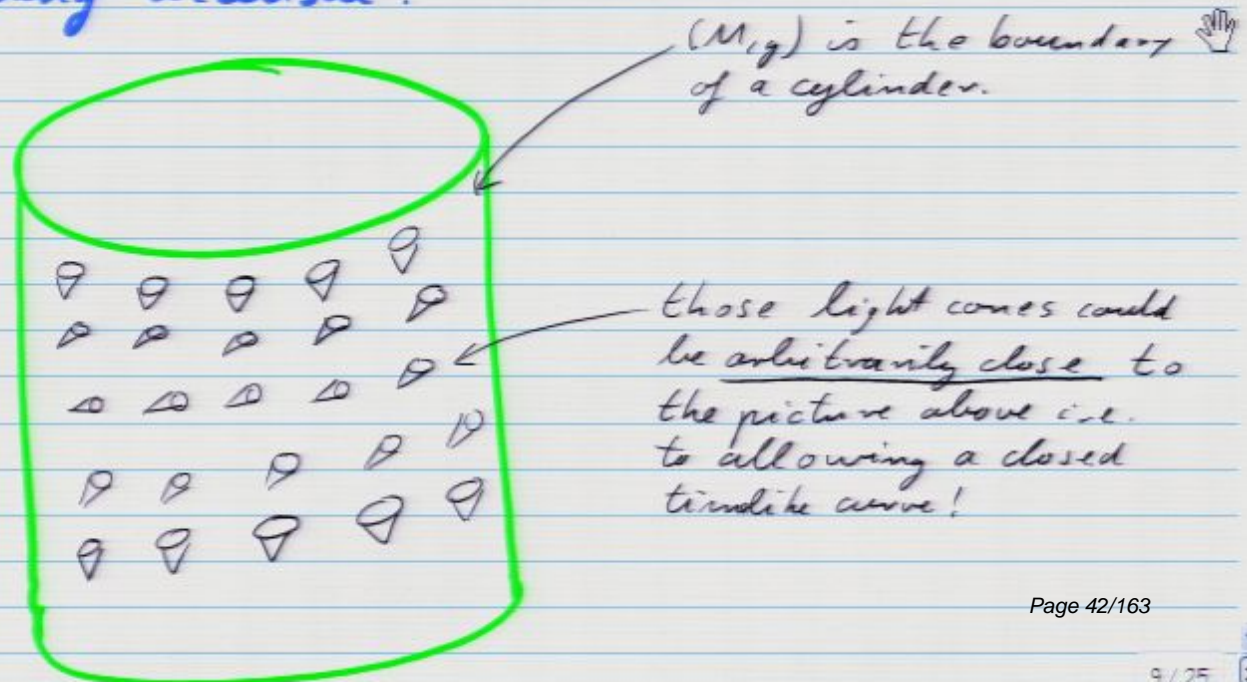 (M,g) is the boundary
of a cylinder.
those light cones could
be arbitrarily close to
the picture above i.e.
to allowing a closed
timelike curve!
Page 42/163
9/25